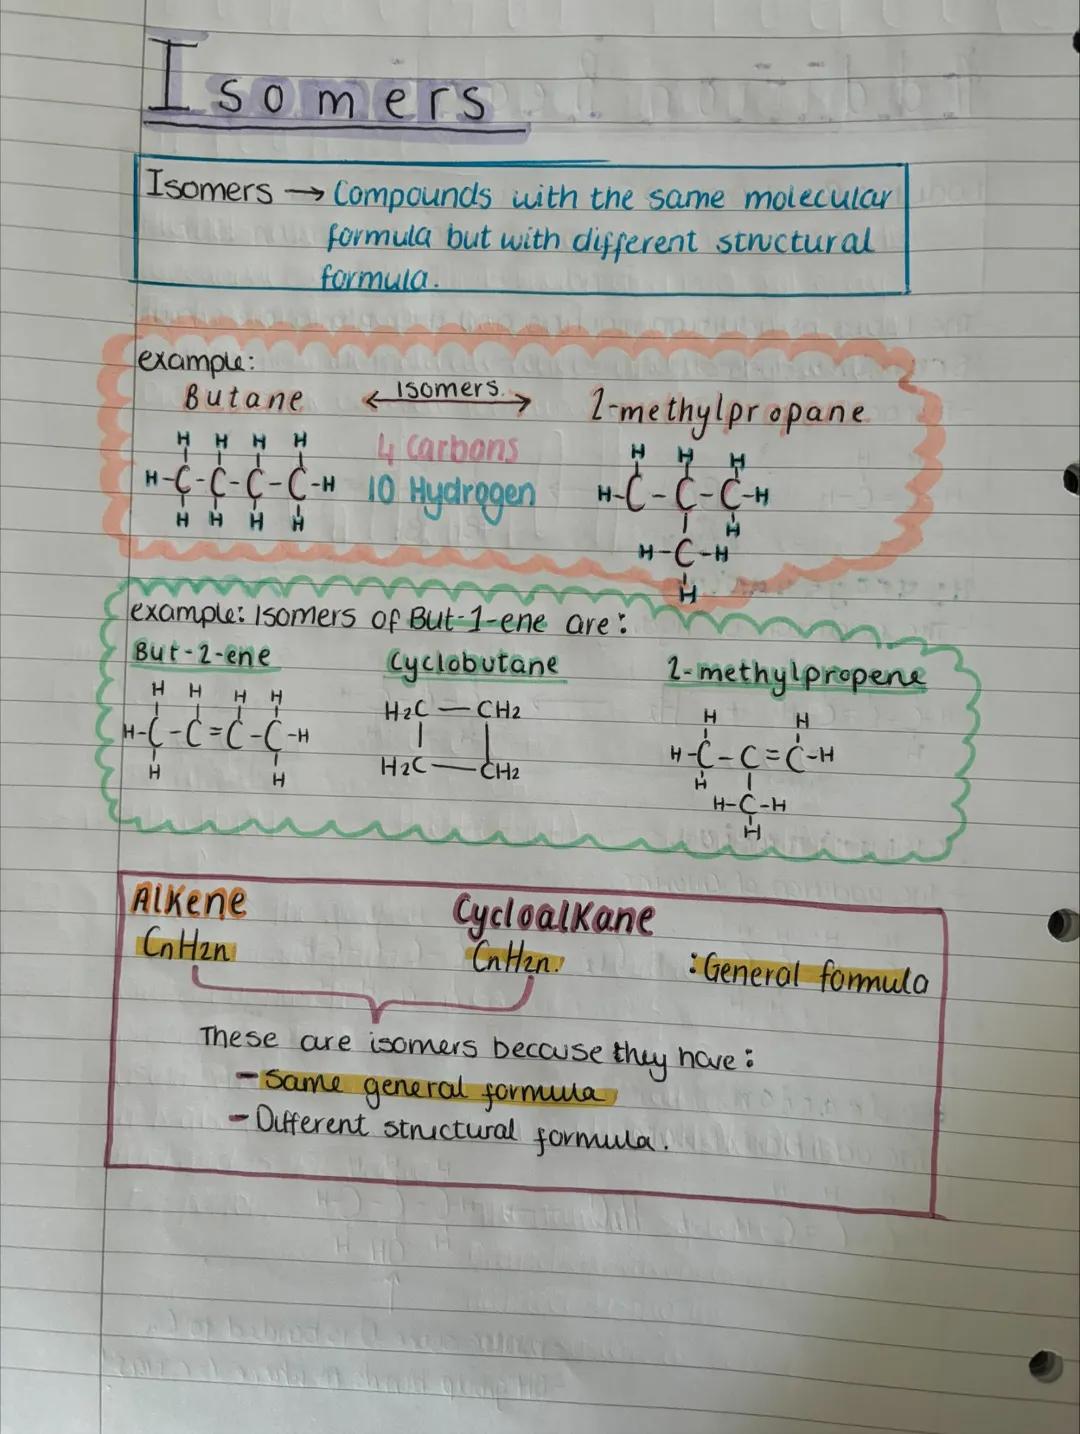 Isomers
Isomers → Compounds with the same molecular
formula but with different structural
formula.
example:
Butane ← isomers. → 2-methylpropane
H H H H
H-C-C-C-C-H
H H H H
4 Carbons
10 Hydrogen
H H H
H-C-C-C-H
H
H-C-H
H
example: Isomers of But-1-ene are:
But-2-ene Cyclobutane 2-methylpropene
H H H H
H-C-C=C-C-H
H H
H2C — CH2
H2C — CH2
H H
H-C-C=C-H
H
H-C-H
H
Alkene Cycloalkane
CnH2n CnH2n. : General formula
These are isomers because they have:
- Same general formula
- Different structural formula.